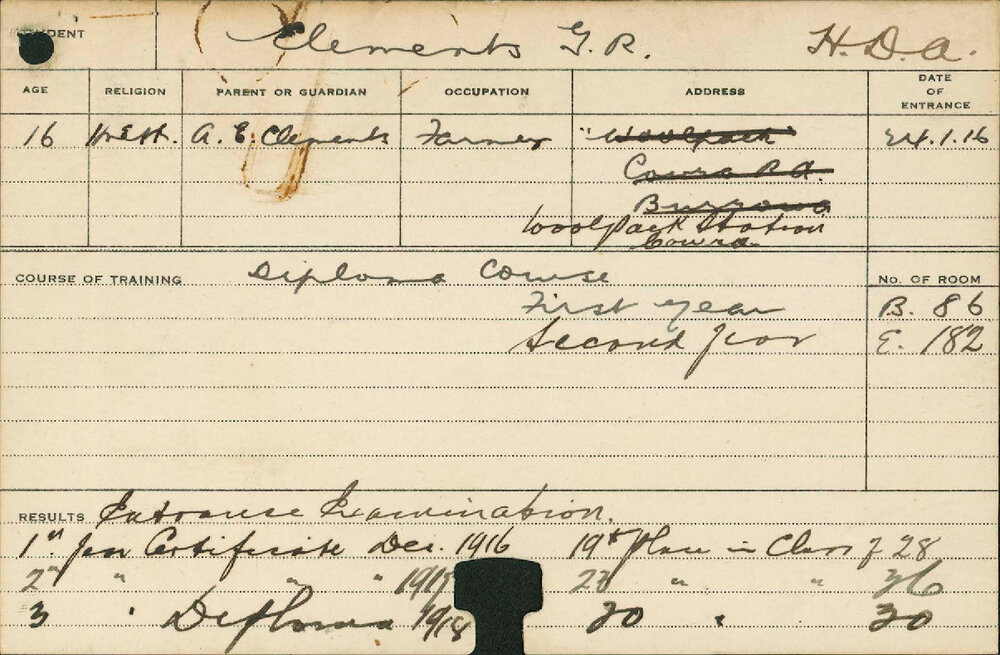 STUDENT Clements G. R. H. D. A.
AGE RELIGION PARENT OR GUARDIAN OCCUPATION ADDRESS DATE OF ENTRANCE
16 Meth. A. E. Clements Farmer "Woolpack" 24.1.16
Cowra Rd.
Burrowa
Woolpack Station
Cowra
COURSE OF TRAINING Diploma Course No. OF ROOM
First Year B. 86
Second Year E. 182
RESULTS Entrance Examination.
1st Year Certificate Dec. 1916 19th Place in Class of 28
2" " " " 1917 23 " " 26
3 " Diploma 1918 20 " 20